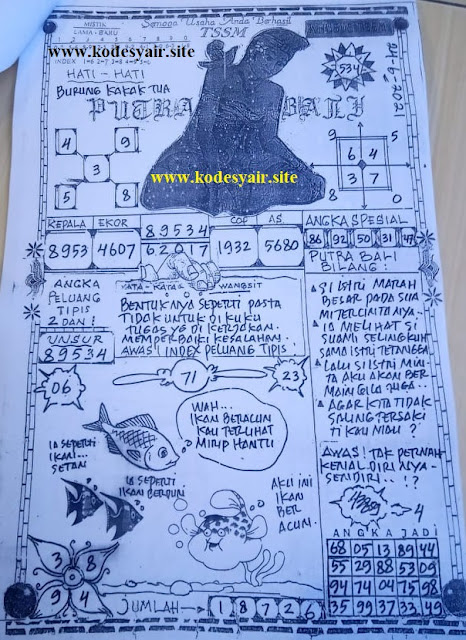 MISTIK
LAMA - BARU
Semoga Usaha Anda Berhasil
TSSM
www.kodesyair.site
INDEX 1=6 2=7 3=8 4=9 5=0
HATI - HATI
BURUNG KAKAK TUA
PUTRA BALI
534
24-6-2021
4 9
3
5 8
9 5
6 4
3 7
8 0
www.kodesyair.site
KEPALA EKOR
8953 4607
89534
62017
COP AS
1932 5680
ANGKA SPESIAL
86 92 50 31 47
PUTRA BALI
BILANG:
ANGKA
PELUANG
TIPIS
2 DARI:
UNSUR
89534
KATA - KATA WANGSIT
BENTUKNYA SEPERTI PASTA
TIDAK UNTUK DI KUKU
TUGAS YG DI KERJAKAN.
MEMPERBAIKI KESALAHAN.
AWAS! INDEX PELUANG TIPIS
SI ISTRI MARAH
BESAR PADA SUA
MI TERCINTANYA.
IA MELIHAT SI
SUAMI SELINGKUH
SAMA ISTRI TETANGGA
LALU SI ISTRI MIN
TA AKU AKAN BER
MAIN GILA JUGA..
AGAR KITA TIDAK
SALING TERSAKI
TI KAU MAU?
06
71
23
WAH...
IKAN BERACUN
KAU TERLIHAT
MIRIP HANTU
IA SEPERTI
IKAN...
SETAN
IA SEPERTI
IKAN BERDURI
AKU INI
IKAN
BER
ACUN.
AWAS! TAK PERNAH
KENAL DIRINYA-
SENDIRI..!?
4
ANGKA JADI
68 05 13 89 44
55 29 88 53 09
94 74 04 75 98
35 99 37 33 49
3 8
9 4
JUMLAH → 1 8 7 2 6